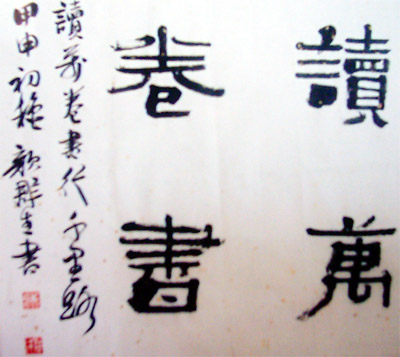 讀萬
卷書
讀萬卷書行千里路
甲申初穐群生書